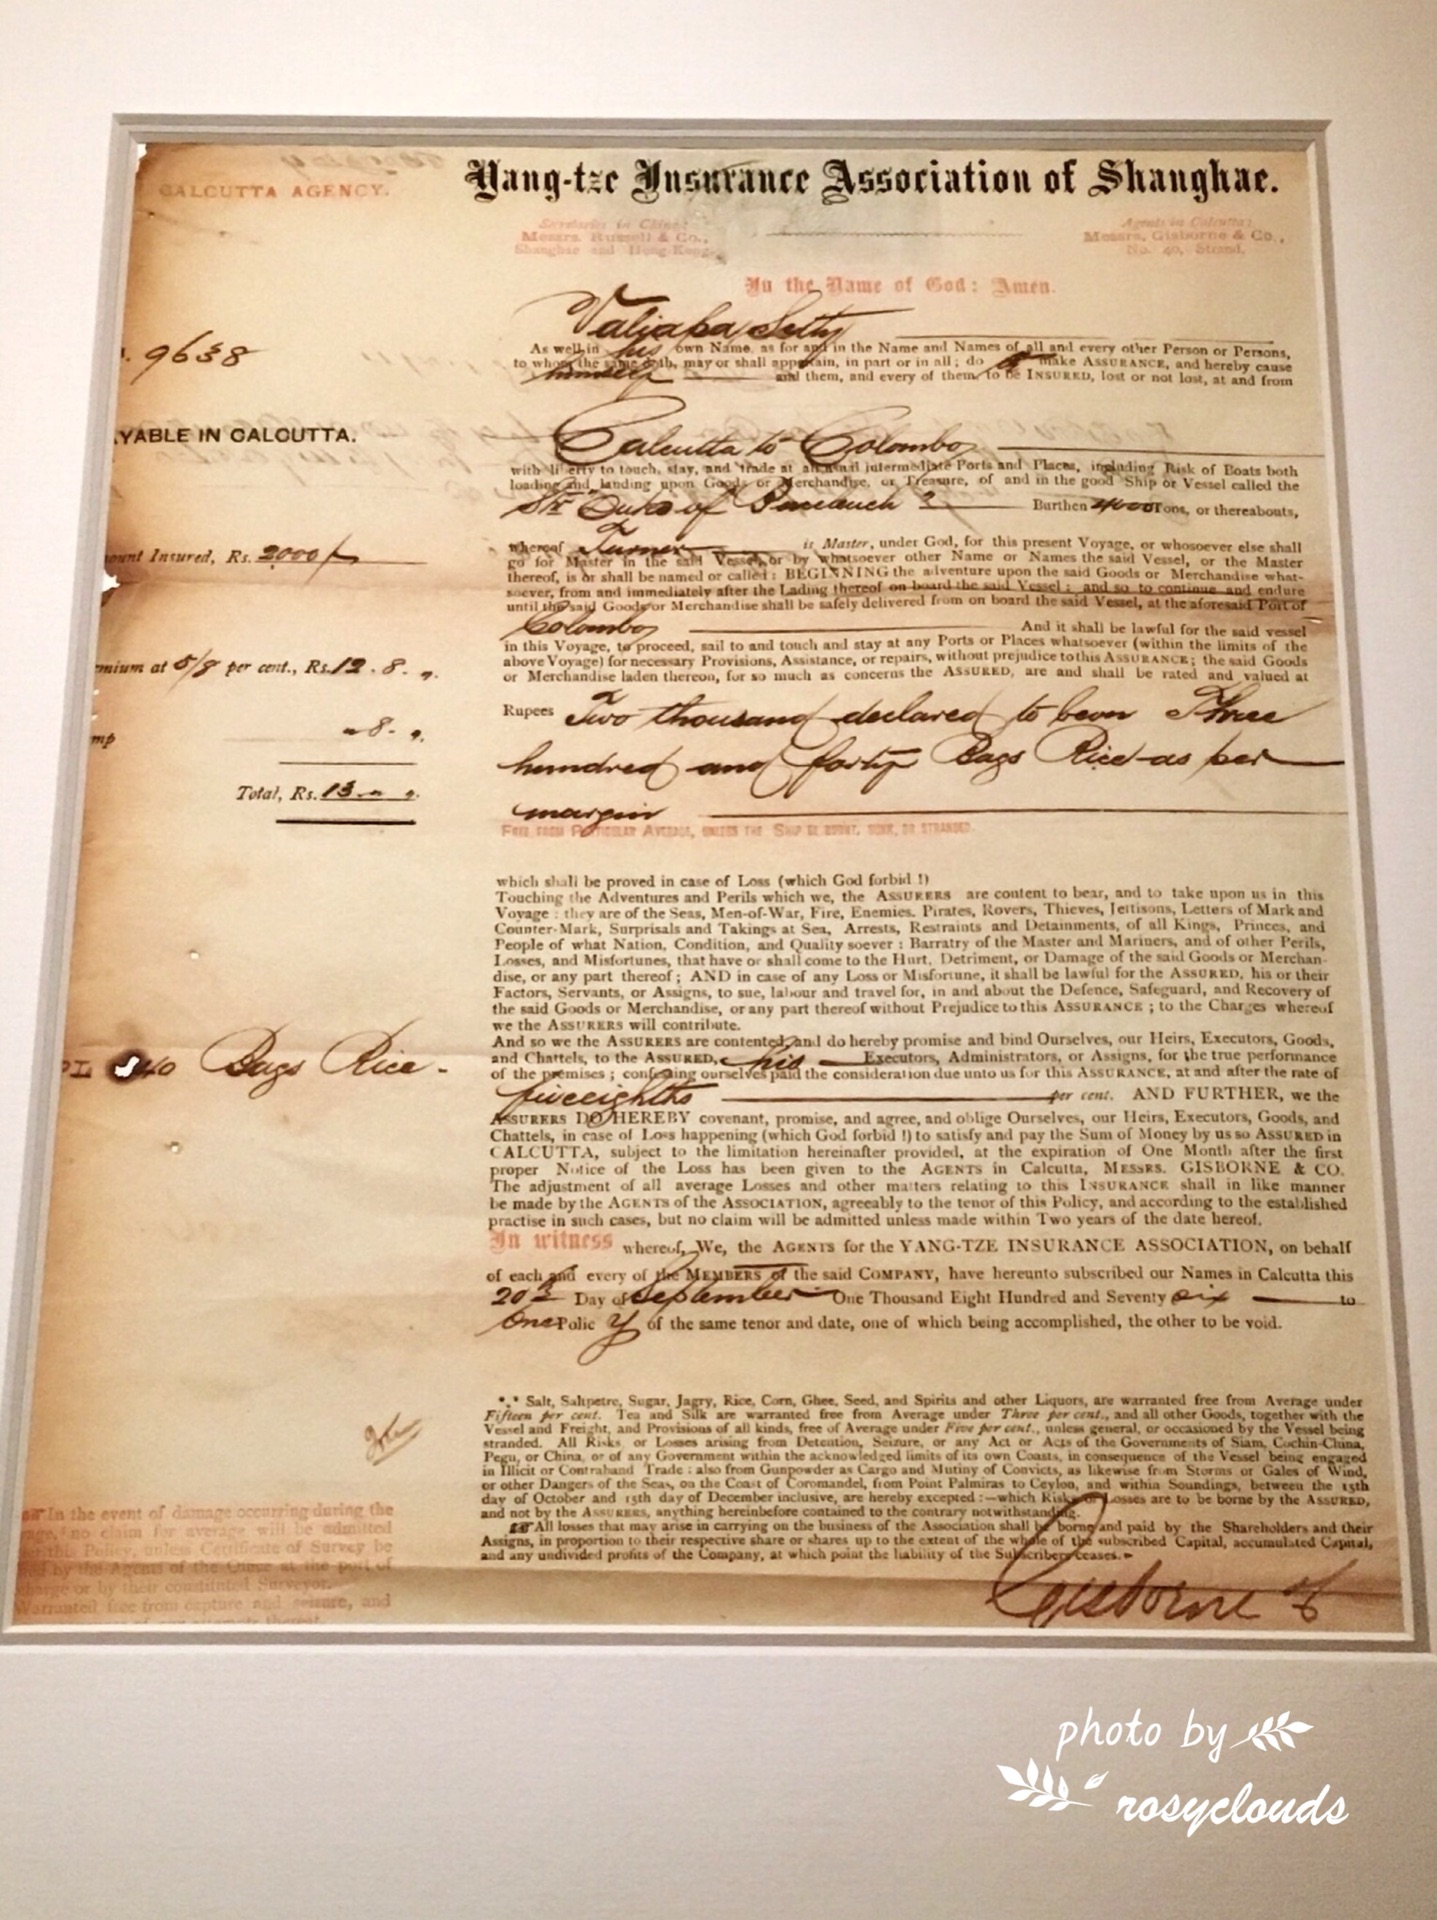 CALCUTTA AGENCY.
Yang-tze Insurance Association of Shanghae.
Secretaries in China:
Messrs. Russell & Co.,
Shanghae and Hong Kong.
Agents in Calcutta:
Messrs. Gisborne & Co.,
No. 40, Strand.
In the Name of God: Amen.
9638
As well in his own Name, as for and in the Name and Names of all and every other Person or Persons,
to whom the same doth, may or shall appertain, in part or in all; do make ASSURANCE, and hereby cause
himself and them, and every of them, to be INSURED, lost or not lost, at and from
YABLE IN CALCUTTA.
Calcutta to Colombo
with liberty to touch, stay, and trade at all intermediate Ports and Places, including Risk of Boats both
loading and landing upon Goods or Merchandise, or Treasure, of and in the good Ship or Vessel called the
Str "Duke of Buccleuch" Burthen 4000 Tons, or thereabouts,
ount Insured, Rs. 2000/-
whereof Turner is Master, under God, for this present Voyage, or whosoever else shall
go for Master in the said Vessel, or by whatsoever other Name or Names the said Vessel, or the Master
thereof, is or shall be named or called: BEGINNING the adventure upon the said Goods or Merchandise what-
soever, from and immediately after the Lading thereof on board the said Vessel; and so to continue and endure
until the said Goods or Merchandise shall be safely delivered from on board the said Vessel, at the aforesaid Port of
Colombo And it shall be lawful for the said vessel
in this Voyage, to proceed, sail to and touch and stay at any Ports or Places whatsoever (within the limits of the
above Voyage) for necessary Provisions, Assistance, or repairs, without prejudice to this ASSURANCE; the said Goods
or Merchandise laden thereon, for so much as concerns the ASSURED, are and shall be rated and valued at
mium at 5/8 per cent., Rs. 12.8.
mp 8.
Total, Rs. 13
Rupees Two thousand declared to be on Three
hundred and forty Bags Rice as per
margin
FREE FROM PARTICULAR AVERAGE, UNLESS THE SHIP BE BURNT, SUNK, OR STRANDED.
which shall be proved in case of Loss (which God forbid!)
Touching the Adventures and Perils which we, the ASSURERS are content to bear, and to take upon us in this
Voyage: they are of the Seas, Men-of-War, Fire, Enemies, Pirates, Rovers, Thieves, Jettisons, Letters of Mark and
Counter-Mark, Surprisals and Takings at Sea, Arrests, Restraints and Detainments, of all Kings, Princes, and
People of what Nation, Condition, and Quality soever: Barratry of the Master and Mariners, and of other Perils,
Losses, and Misfortunes, that have or shall come to the Hurt, Detriment, or Damage of the said Goods or Merchan-
dise, or any part thereof; AND in case of any Loss or Misfortune, it shall be lawful for the ASSURED, his or their
Factors, Servants, or Assigns, to sue, labour and travel for, in and about the Defence, Safeguard, and Recovery of
the said Goods or Merchandise, or any part thereof without Prejudice to this ASSURANCE; to the Charges whereof
we the ASSURERS will contribute.
40 Bags Rice.
And so we the ASSURERS are contented, and do hereby promise and bind Ourselves, our Heirs, Executors, Goods,
and Chattels, to the ASSURED, his Executors, Administrators, or Assigns, for the true performance
of the premises; confessing ourselves paid the consideration due unto us for this ASSURANCE, at and after the rate of
five eighths per cent. AND FURTHER, we the
ASSURERS DO HEREBY covenant, promise, and agree, and oblige Ourselves, our Heirs, Executors, Goods, and
Chattels, in case of Loss happening (which God forbid!) to satisfy and pay the Sum of Money by us so ASSURED in
CALCUTTA, subject to the limitation hereinafter provided, at the expiration of One Month after the first
proper Notice of the Loss has been given to the AGENTS in Calcutta, MESSRS. GISBORNE & CO.
The adjustment of all average Losses and other matters relating to this INSURANCE shall in like manner
be made by the AGENTS of the ASSOCIATION, agreeably to the tenor of this Policy, and according to the established
practise in such cases, but no claim will be admitted unless made within Two years of the date hereof.
In witness whereof, We, the AGENTS for the YANG-TZE INSURANCE ASSOCIATION, on behalf
of each and every of the MEMBERS of the said COMPANY, have hereunto subscribed our Names in Calcutta this
20th Day of September One Thousand Eight Hundred and Seventy six to
One Polic y of the same tenor and date, one of which being accomplished, the other to be void.
*.* Salt, Saltpetre, Sugar, Jagry, Rice, Corn, Ghee, Seed, and Spirits and other Liquors, are warranted free from Average under
Fifteen per cent. Tea and Silk are warranted free from Average under Three per cent., and all other Goods, together with the
Vessel and Freight, and Provisions of all kinds, free of Average under Five per cent., unless general, or occasioned by the Vessel being
stranded. All Risks or Losses arising from Detention, Seizure, or any Act or Acts of the Governments of Siam, Cochin-China,
Pegu, or China, or of any Government within the acknowledged limits of its own Coasts, in consequence of the Vessel being engaged
in Illicit or Contraband Trade: also from Gunpowder as Cargo and Mutiny of Convicts, as likewise from Storms or Gales of Wind,
or other Dangers of the Seas, on the Coast of Coromandel, from Point Palmiras to Ceylon, and within Soundings, between the 15th
day of October and 15th day of December inclusive, are hereby excepted:—which Risks or Losses are to be borne by the ASSURED,
and not by the ASSURERS, anything hereinbefore contained to the contrary notwithstanding.
All losses that may arise in carrying on the business of the Association shall be borne and paid by the Shareholders and their
Assigns, in proportion to their respective share or shares up to the extent of the whole of the subscribed Capital, accumulated Capital,
and any undivided profits of the Company, at which point the liability of the Subscribers ceases.
In the event of damage occurring during the
age, no claim for average will be admitted
this Policy, unless Certificate of Survey be
by the Agents of the Office at the port of
or by their constituted Surveyor.
Warranted free from capture and seizure, and
Gisborne
photo by
rosyclouds